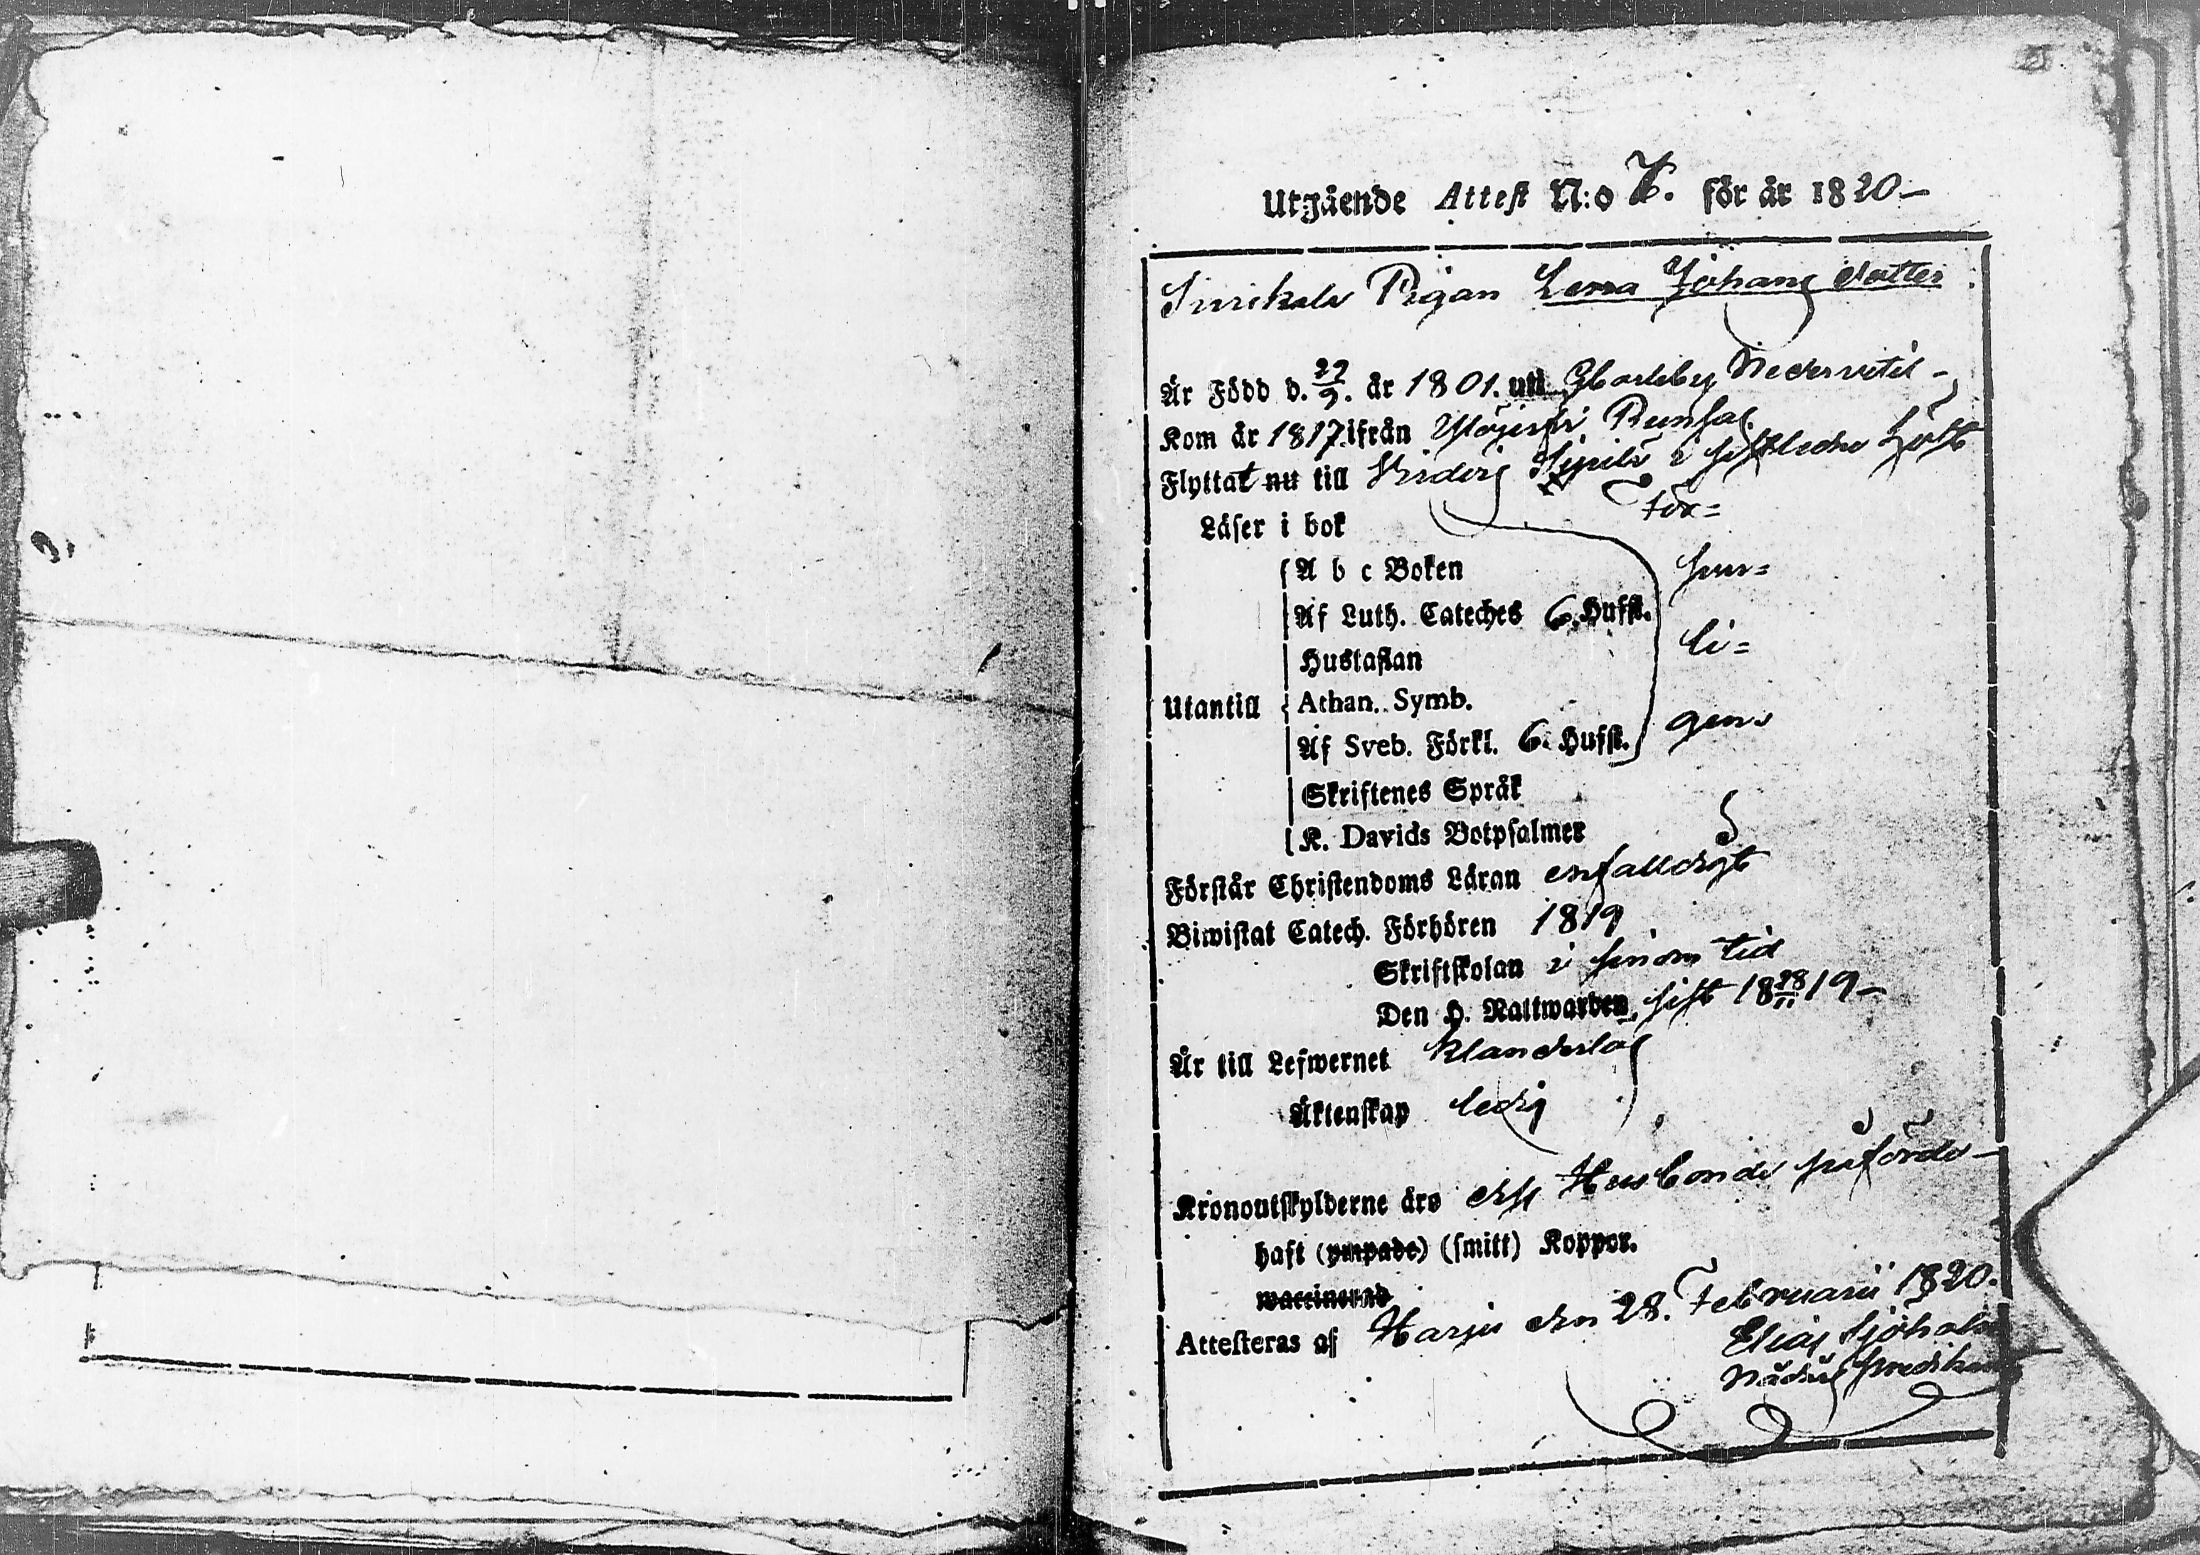 Utgående Attest N:o för år 1820-
Pigan Lena Johans dotter
Är Född d. 29/9. år 1801. uti Nedervetil
Kom år 1817 ifrån
Flyttat nu till i
Läser i bok för=
A b c Boken svar=
Af Luth. Cateches 6. Hufst.
Hustaflan li=
Utantill Athan. Symb.
Af Sveb. Förkl. 6. Hufst. gen
Skriftenes Språk
K. Davids Botpsalmer
Förstår Christendoms Läran enfalldigt
Biwistat Catech. Förhören 1819
Skriftskolan i sinom tid
Den H. Nattwarden sist 18 28/11 19-
Är till Lefwernet klanderlös
Äktenskap ledig
Kronoutskylderne äro Husbonde påförde
haft (ympade) (smitt) Koppor.
waccinerad
Attesteras af Harju den 28. Februarii 1820.
Elias Sjöholm